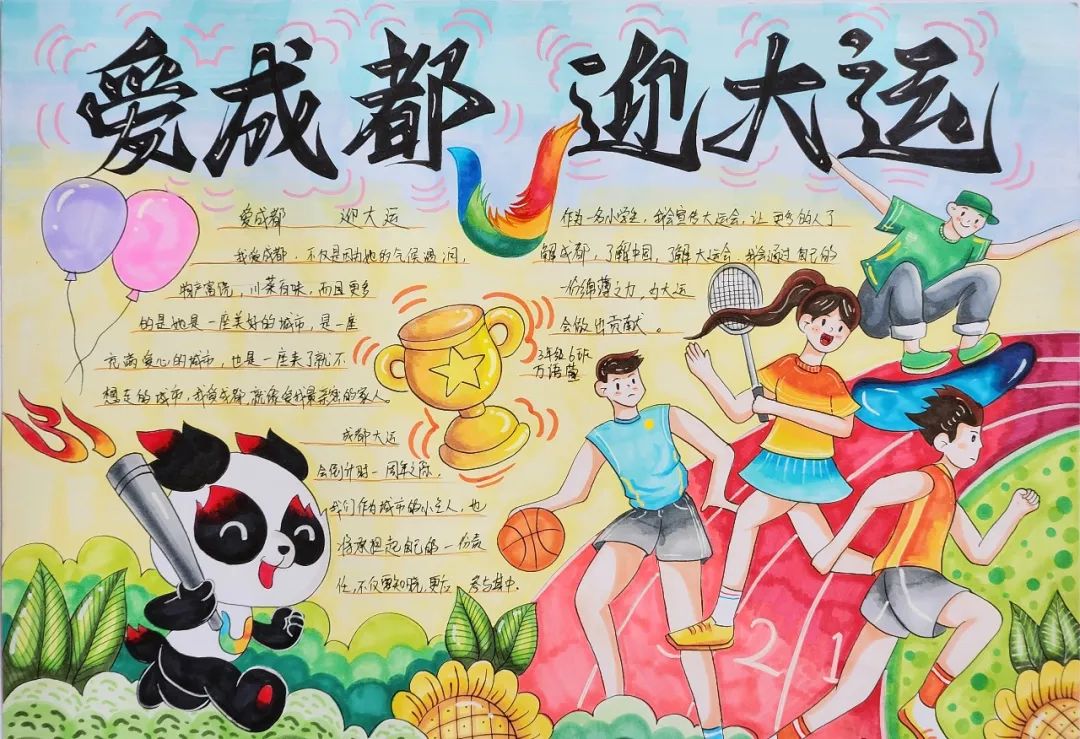 爱成都 迎大运
爱成都 迎大运
我爱成都，不仅是因为她的气候温润，
物产富饶，川菜有味，而且更多
的是她是一座美好的城市，是一座
充满爱心的城市，也是一座来了就不
想走的城市，我爱成都就像爱我最亲密的家人。
成都大运
会倒计时一周年之际，
我们作为城市的小主人，也
将承担起自己的一份责
任，不仅要知晓，更应参与其中。
作为一名小学生，我会宣传大运会，让更多的人了
解成都，了解中国，了解大运会，我会通过自己的
一份绵薄之力，为大运
会做出贡献。
3年级6班
万语
31
2 1